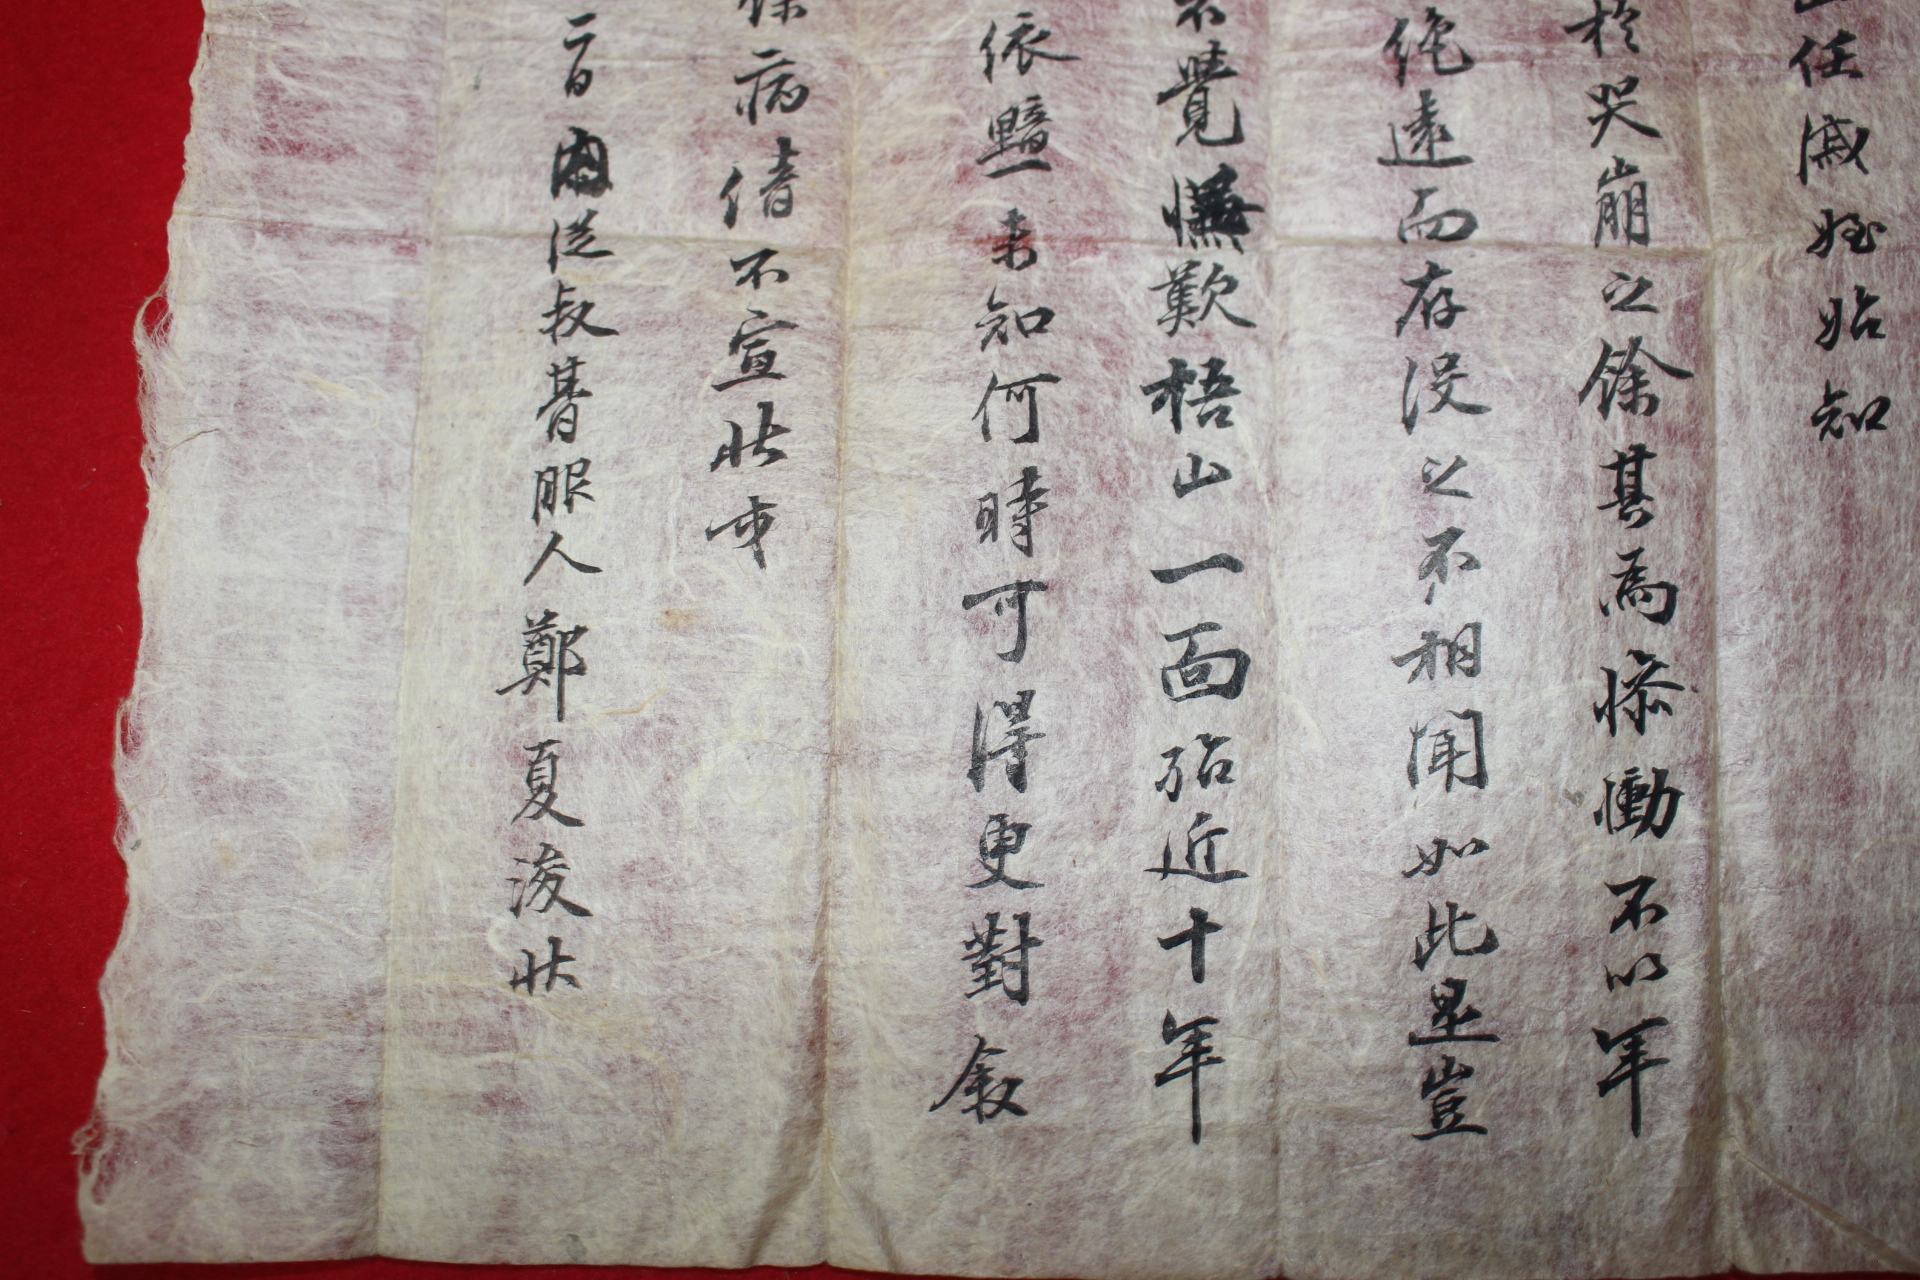 任戚姪始知
於哭崩之餘其爲慘慟不以年
絶遠而存沒之不相聞如此是豈
不覺憮歎梧山一面殆近十年
依黯未知何時可得更對叙
病倩不宣狀
二日 從叔朞服人鄭夏浚狀